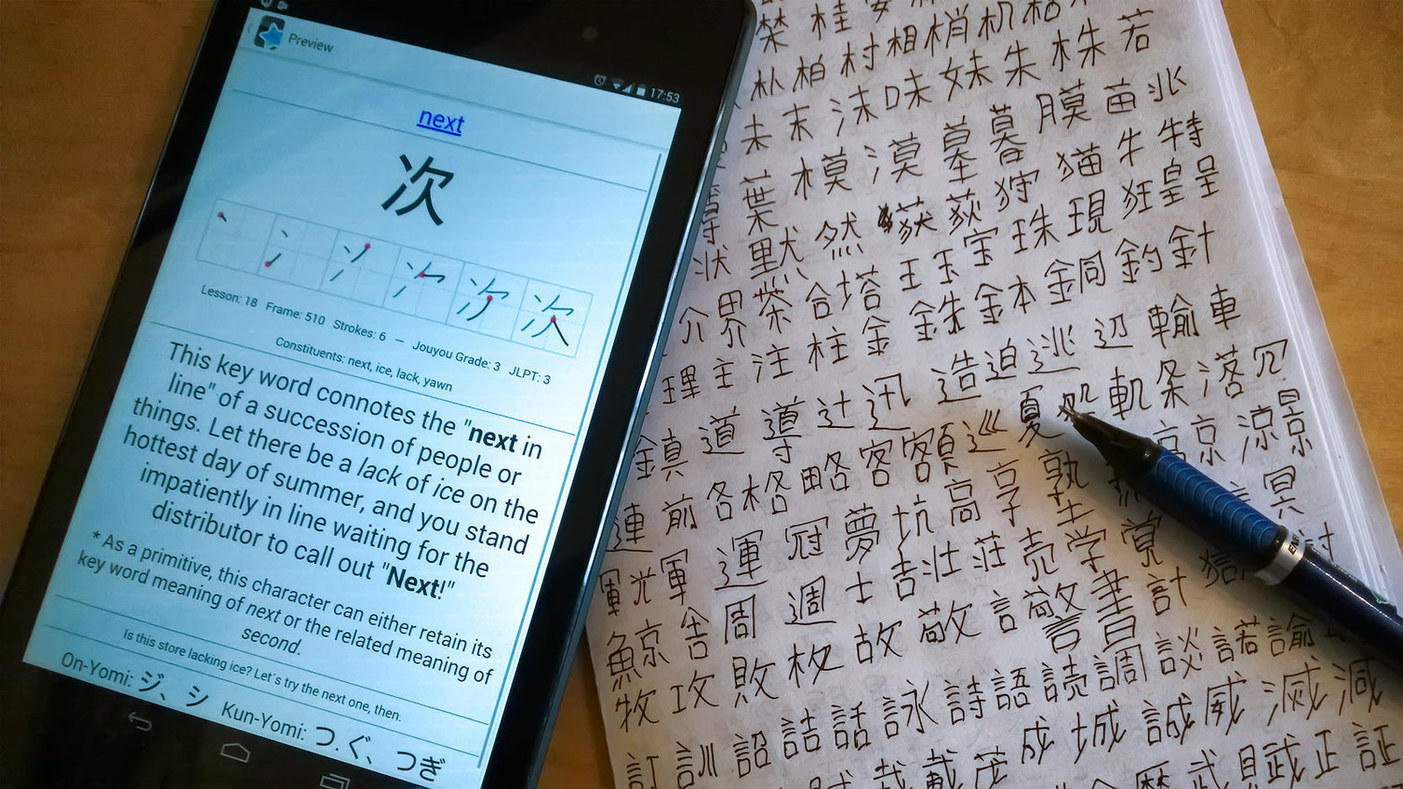 Preview
17:53
next
次
Lesson: 18 Frame: 510 Strokes: 6 – Jouyou Grade: 3 JLPT: 3
Constituents: next, ice, lack, yawn
This key word connotes the "next in
line" of a succession of people or
things. Let there be a lack of ice on the
hottest day of summer, and you stand
impatiently in line waiting for the
distributor to call out "Next!"
* As a primitive, this character can either retain its
key word meaning of next or the related meaning of
second.
Is this store lacking ice? Let's try the next one, then.
On-Yomi: ジ、シ Kun-Yomi: つ.ぐ、つぎ
桂
朴 柏 村 相 梢 机
未 末 沫 味 妹 朱 株 若
葉 模 漠 墓 暮 膜 苗 兆
状 黙 然 荻 狩 猫 牛 特
介 界 茶 合 塔 王 玉 宝 珠 現 狂 皇 呈
理 主 注 柱 金 銑 鉢 銅 釣 針
鎮 道 導 辻 迅 造 迫 逃 辺 輸 車
連 前 各 格 略 客 額 巡 夏 処 軌 条 落 冗
軍 光 軍 運 冠 夢 坑 高 享 塾 京 涼 景
鯨 舎 周 週 士 吉 壮 荘 売 学 覚 冥
牧 攻 敗 枚 故 敬 言 警 書 計 討
訂 訓 詔 詰 話 詠 詩 語 読 調 談 諾 諭
栽 載 茂 成 城 誠 威 滅 減
歴 武 賦 正 証